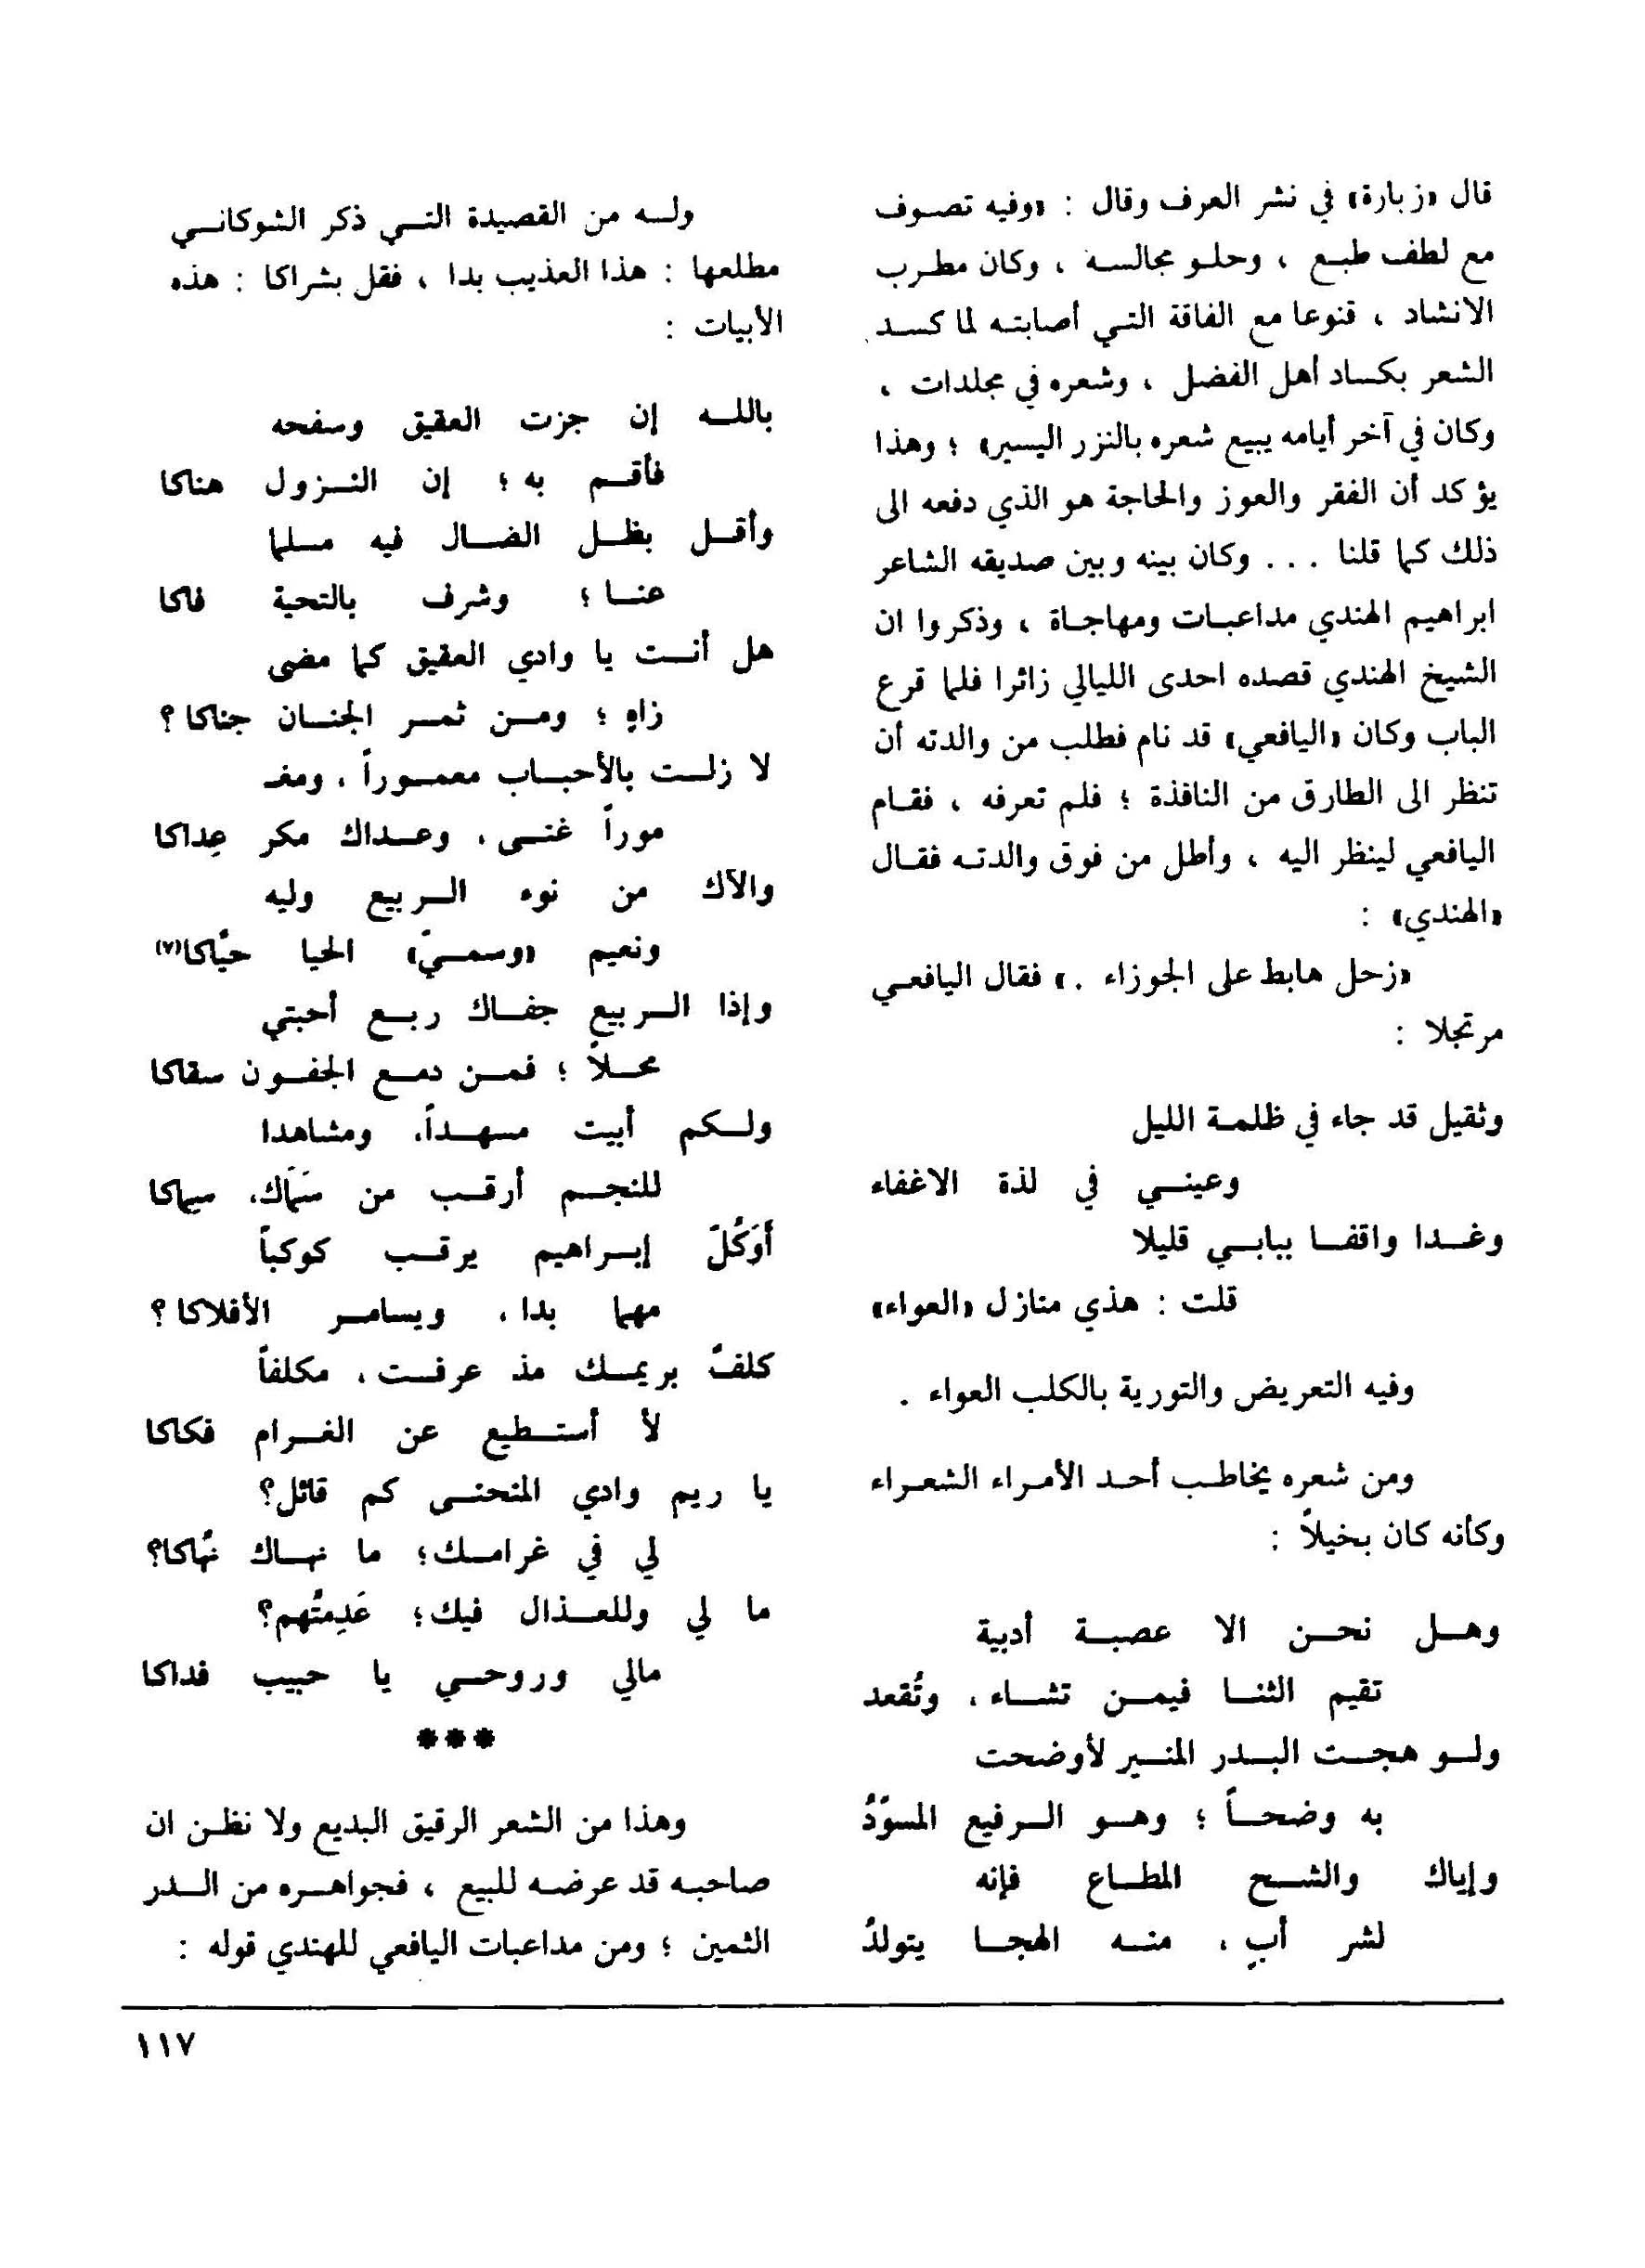 قال «زبارة» في نشر العرف وقال : «وفيه تصوف
مع لطف طبع ، وحلو مجالسه ، وكان مطرب
الانشاد ، قنوعا مع الفاقة التي أصابته لما كسد
الشعر بكساد أهل الفضل ، وشعره في مجلدات ،
وكان في آخر أيامه يبيع شعره بالنزر اليسير» ؛ وهذا
يؤكد أن الفقر والعوز والحاجة هو الذي دفعه الى
ذلك كما قلنا ... وكان بينه وبين صديقه الشاعر
ابراهيم الهندي مداعبات ومهاجاة ، وذكروا ان
الشيخ الهندي قصده احدى الليالي زائرا فلما قرع
الباب وكان «اليافعي» قد نام فطلب من والدته أن
تنظر الى الطارق من النافذة ؛ فلم تعرفه ، فقام
اليافعي لينظر اليه ، وأطل من فوق والدته فقال
«الهندي» :
«زحل هابط على الجوزاء .» فقال اليافعي
مرتجلا :
وثقيل قد جاء في ظلمة الليل
وعيني في لذة الاغفاء
وغدا واقفا ببابي قليلا
قلت : هذي منازل «العواء»
وفيه التعريض والتورية بالكلب العواء .
ومن شعره يخاطب أحد الأمراء الشعراء
وكأنه كان بخيلاً :
وهل نحن الا عصبة أدبية
تقيم الثنا فيمن تشاء ، وتُقعد
ولو هجت البدر المنير لأوضحت
به وضحاً ؛ وهو الرفيع المسوّدُ
وإياك والشح المطاع فإنه
لشر أبٍ ، منه الهجا يتولدُ
وله من القصيدة التي ذكر الشوكاني
مطلعها : هذا العذيب بدا ، فقل بشراكا : هذه
الأبيات :
بالله إن جزت العقيق وسفحه
فأقم به ؛ إن النزول هناكا
وأقل بظل الضال فيه مسلما
عنا ؛ وشرف بالتحية فاكا
هل أنت يا وادي العقيق كما مضى
زاهٍ ؛ ومن ثمر الجنان جناكا ؟
لا زلت بالأحباب معموراً ، ومغـ
موراً غنى ، وعداك مكر عِداكا
والآك من نوء الربيع وليه
ونعيم «وسميّ» الحيا حيّاكا(٧)
وإذا الربيع جفاك ربع أحبتي
محلاً ؛ فمن دمع الجفون سقاكا
ولكم أبيت مسهداً، ومشاهدا
للنجم أرقب من سَمَاك، سماكا
أوَكُلّ إبراهيم يرقب كوكباً
مهما بدا ، ويسامر الأفلاكا ؟
كلفٌ بريمك مذ عرفت ، مكلفاً
لأ أستطيع عن الغرام فكاكا
يا ريم وادي المنحنى كم قائل؟
لي في غرامك؛ ما نهاك نُهاكا؟
ما لي وللعذال فيك؛ عَدِمتُهم؟
مالي وروحي يا حبيب فداكا
***
وهذا من الشعر الرقيق البديع ولا نظن ان
صاحبه قد عرضه للبيع ، فجواهره من الدر
الثمين ؛ ومن مداعبات اليافعي للهندي قوله :
١١٧